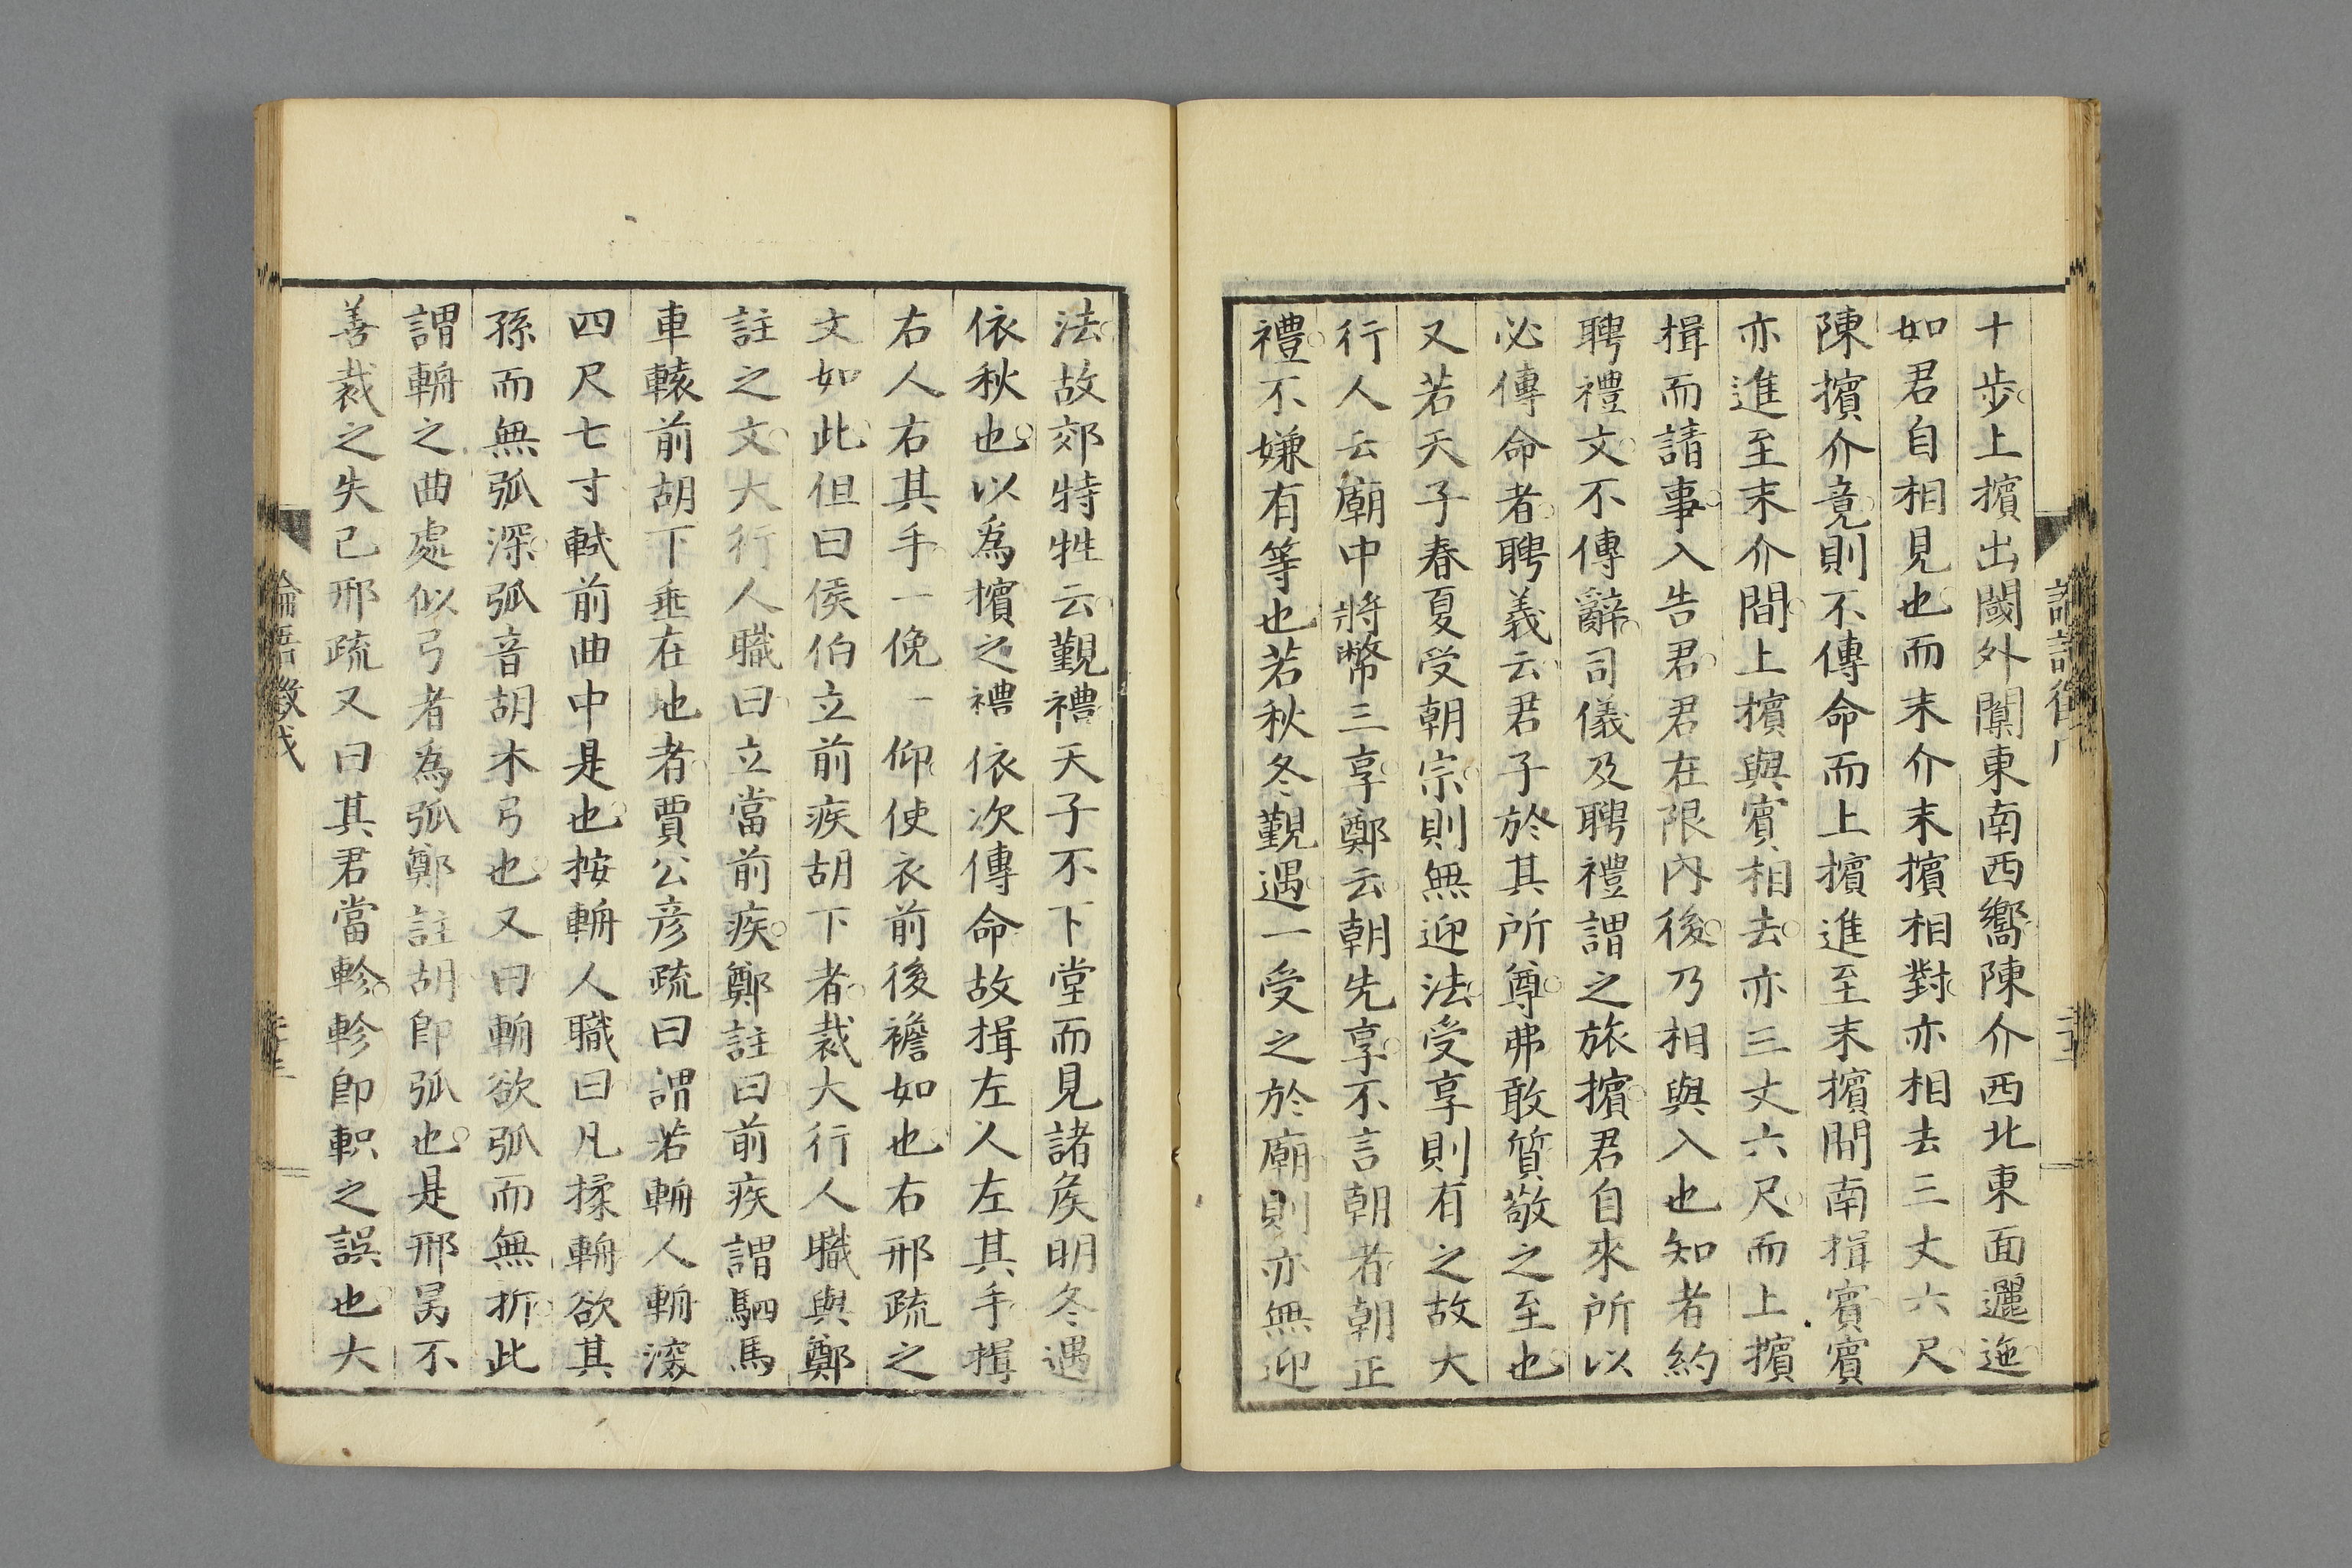 十步上擯出閾外闑東南西嚮陳介西北東面邐迤
如君自相見也而末介末擯相對亦相去三丈六尺
陳擯介竟則不傳命而上擯進至末擯間南揖賓賓
亦進至末介間上擯與賓相去亦三丈六尺而上擯
揖而請事入告君君在限內後乃相與入也知者約
聘禮文不傳辭司儀及聘禮謂之旅擯君自來所以
必傳命者聘義云君子於其所尊弗敢質敬之至也
又若天子春夏受朝宗則無迎法受享則有之故大
行人云廟中將幣三享鄭云朝先享不言朝者朝正
禮不嫌有等也若秋冬覲遇一受之於廟則亦無迎
法故郊特牲云覲禮天子不下堂而見諸矦明冬遇
依秋也以為擯之禮依次傳命故揖左人左其手揖
右人右其手一俛一仰使衣前後襜如也右邢疏之
文如此但曰侯伯立前疾胡下者裁大行人職與鄭
註之文大行人職曰立當前疾鄭註曰前疾謂駟馬
車轅前胡下垂在地者賈公彦疏曰謂若輈人輈深
四尺七寸軾前曲中是也按輈人職曰凡揉輈欲其
孫而無弧深弧音胡木弓也又曰輈欲弧而無折此
謂輈之曲處似弓者為弧鄭註胡卽弧也是邢昺不
善裁之失已邢疏又曰其君當軫軫卽軹之誤也大
論語徵